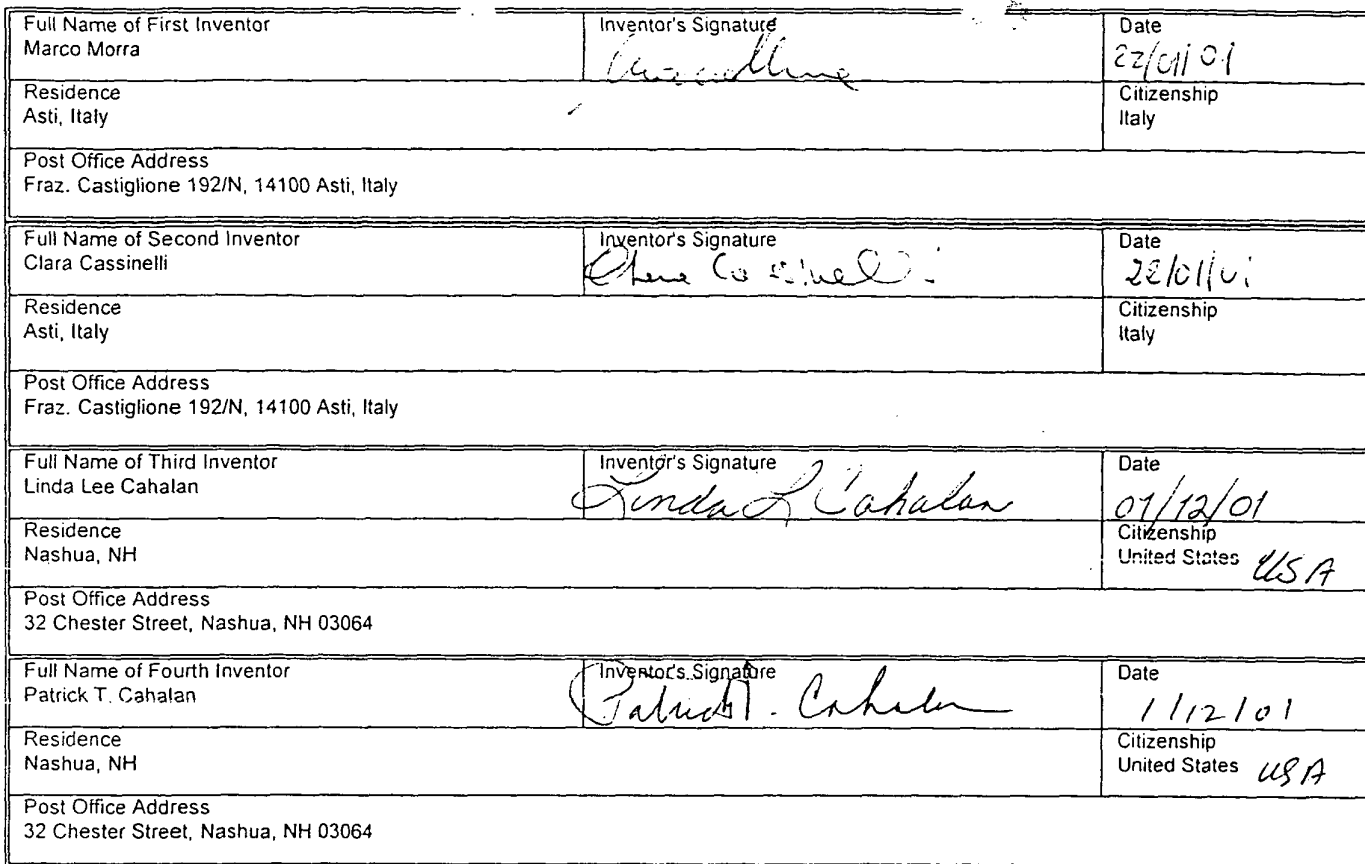 Full Name of First Inventor
Marco Morra
Inventor's Signature
Date
22/01/01
Residence
Asti, Italy
Citizenship
Italy
Post Office Address
Fraz. Castiglione 192/N, 14100 Asti, Italy
Full Name of Second Inventor
Clara Cassinelli
Inventor's Signature
Clara Cassinelli
Date
22/01/01
Residence
Asti, Italy
Citizenship
Italy
Post Office Address
Fraz. Castiglione 192/N, 14100 Asti, Italy
Full Name of Third Inventor
Linda Lee Cahalan
Inventor's Signature
Linda L Cahalan
Date
01/12/01
Residence
Nashua, NH
Citizenship
United States USA
Post Office Address
32 Chester Street, Nashua, NH 03064
Full Name of Fourth Inventor
Patrick T. Cahalan
Inventor's Signature
Patrick T. Cahalan
Date
1/12/01
Residence
Nashua, NH
Citizenship
United States USA
Post Office Address
32 Chester Street, Nashua, NH 03064